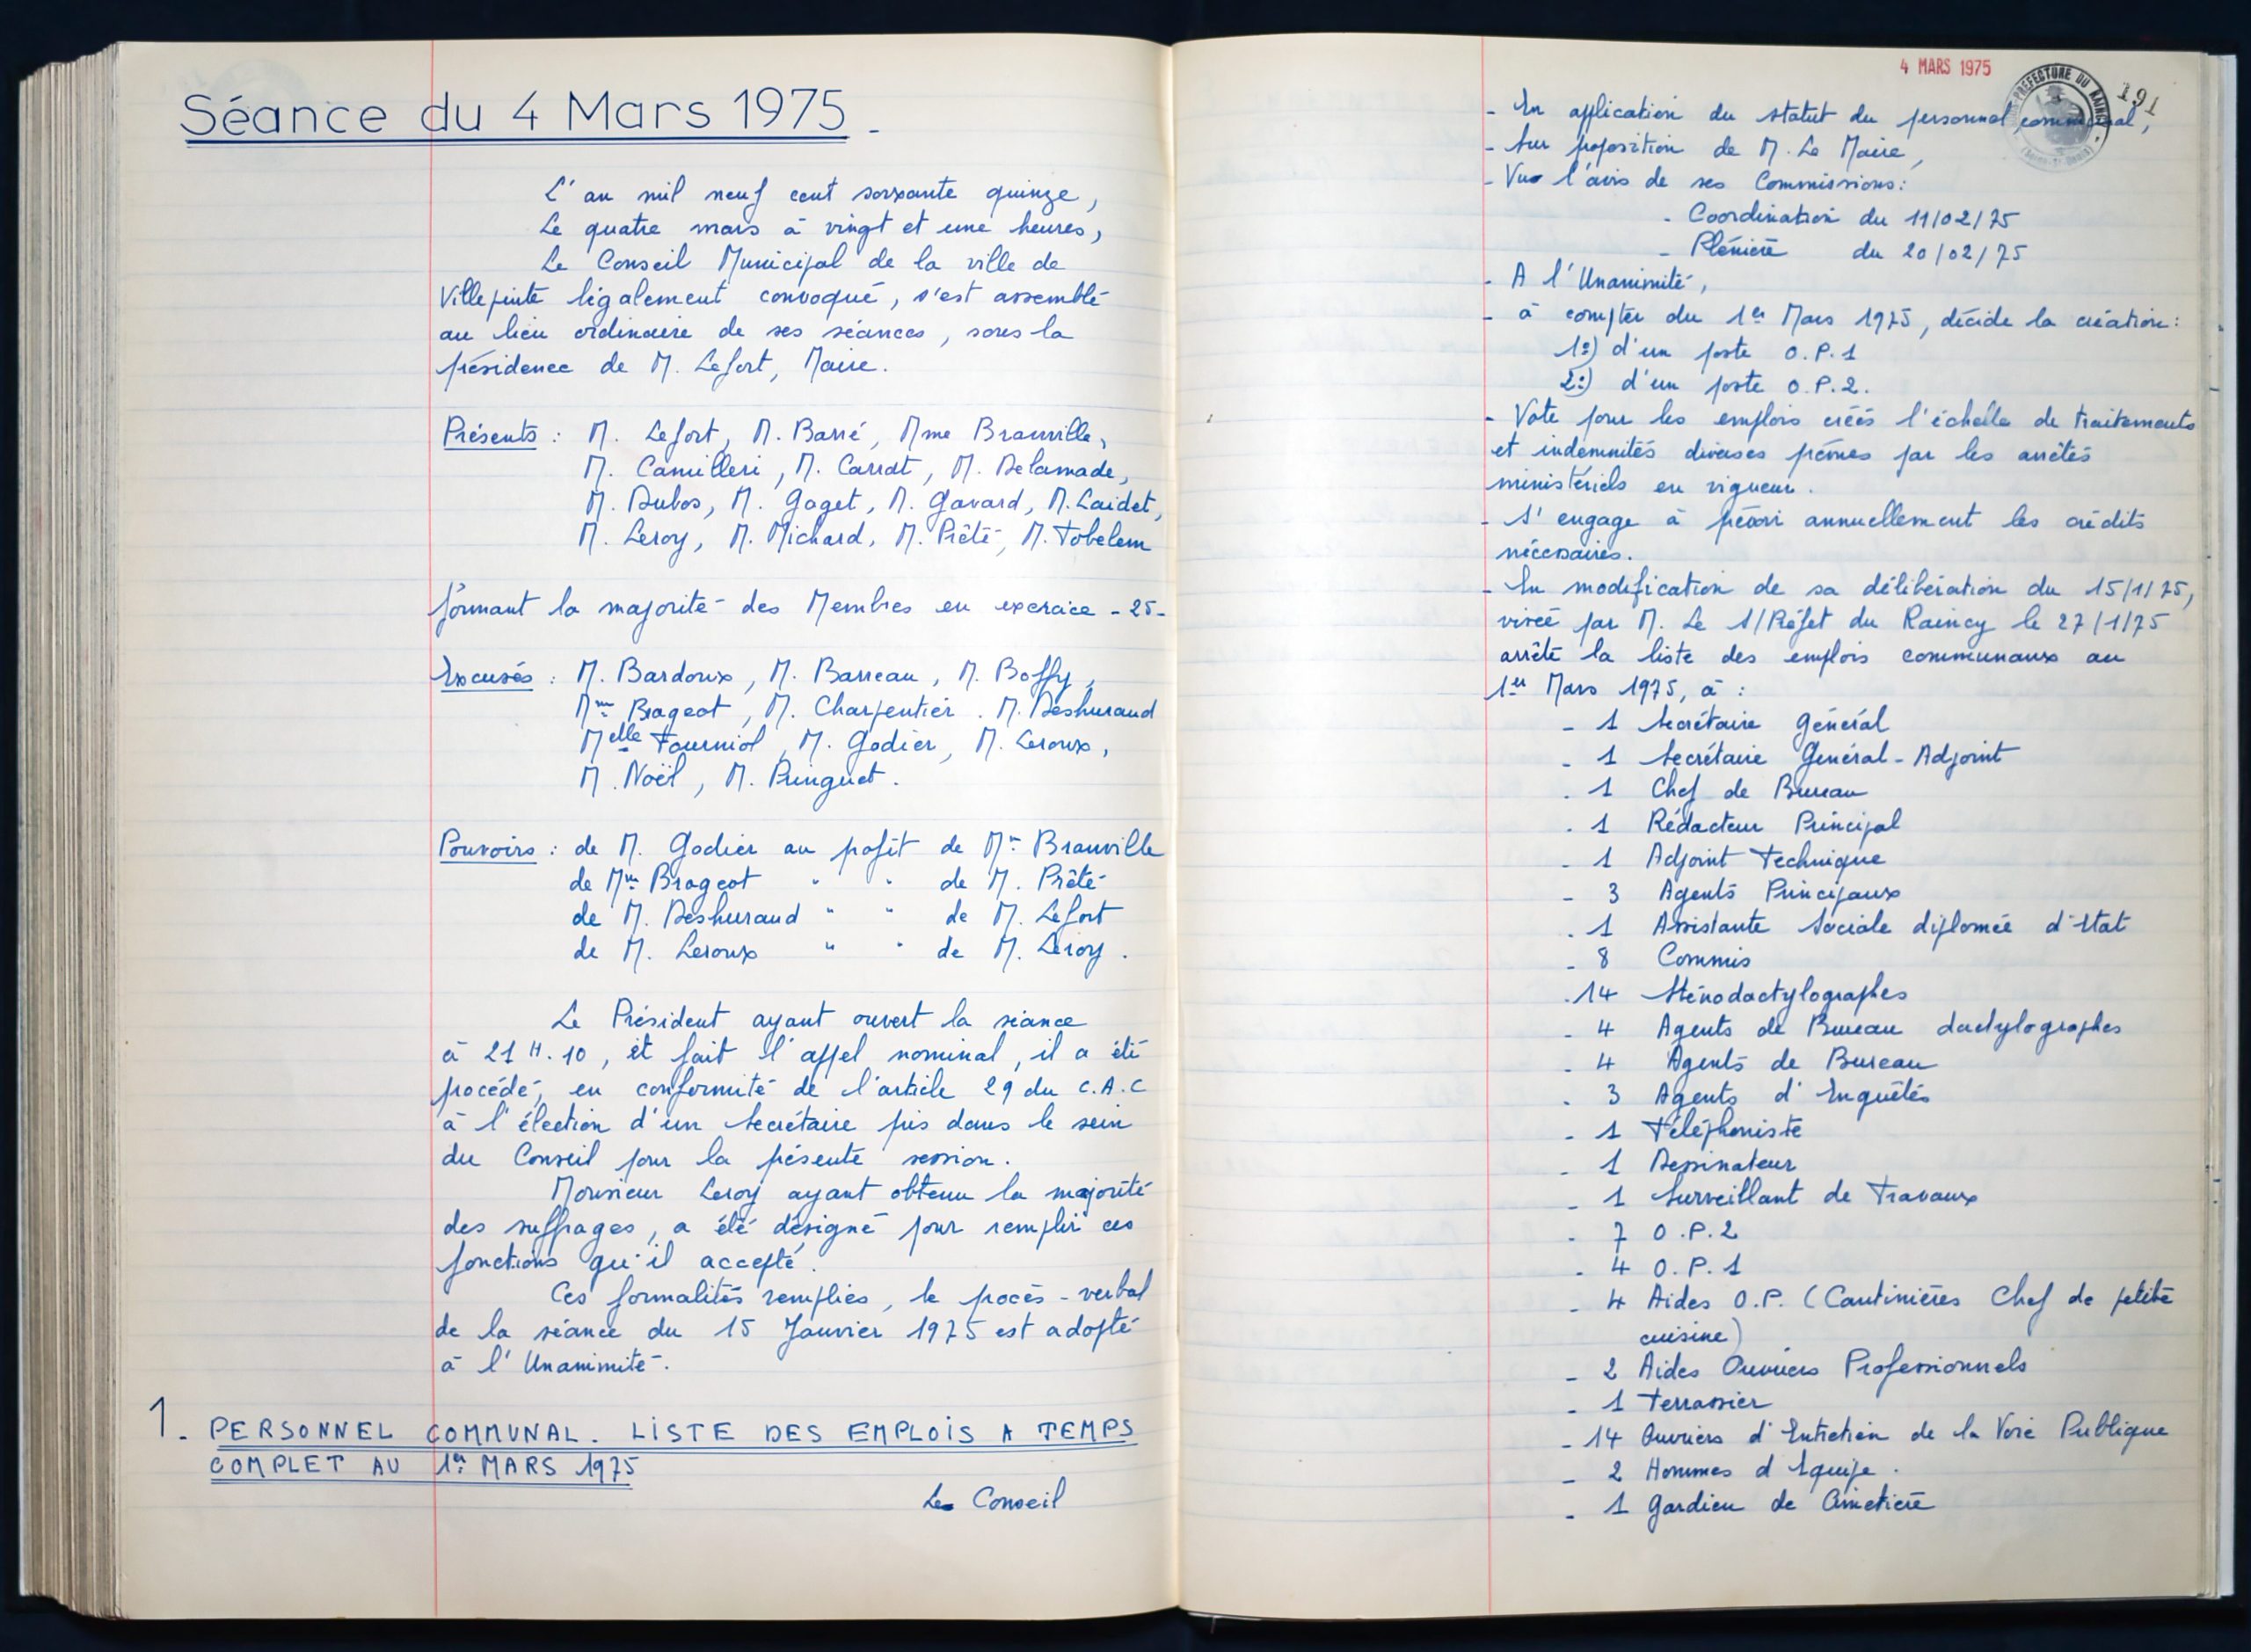 Séance du 4 Mars 1975.
L'an mil neuf cent soixante quinze,
Le quatre mars à vingt et une heures,
Le Conseil Municipal de la ville de
Villepinte légalement convoqué, s'est assemblé
au lieu ordinaire de ses séances, sous la
présidence de M. Lefort, Maire.
Présents : M. Lefort, M. Barré, Mme Brauville,
M. Camilleri, M. Carrat, M. Delamade,
M. Dubos, M. Goget, M. Gavard, M. Laidet,
M. Leroy, M. Michard, M. Prêté, M. Tobelem
formant la majorité des Membres en exercice - 25 -
Excusés : M. Bardoux, M. Barreau, M. Boffy,
Mme Brageot, M. Charpentier. M. Deshuraud
Melle Fourniol, M. Godier, M. Leroux,
M. Noël, M. Pringuet.
Pouvoirs : de M. Godier au profit de Mme Brauville
de Mme Brageot " " de M. Prêté
de M. Deshuraud " " de M. Lefort
de M. Leroux " " de M. Leroy.
Le Président ayant ouvert la séance
à 21 H. 10, et fait l'appel nominal, il a été
procédé, en conformité de l'article 29 du C.A.C
à l'élection d'un Secrétaire pris dans le sein
du Conseil pour la présente session.
Monsieur Leroy ayant obtenu la majorité
des suffrages, a été désigné pour remplir ces
fonctions qu'il accepté.
Ces formalités remplies, le procès-verbal
de la séance du 15 Janvier 1975 est adopté
à l'Unanimité.
1. PERSONNEL COMMUNAL. LISTE DES EMPLOIS A TEMPS
COMPLET AU 1er MARS 1975
Le Conseil
4 MARS 1975
PREFECTURE DU RAINCY
191
- En application du statut du personnel communal,
- Sur proposition de M. Le Maire,
- Vu l'avis de ses Commissions:
- Coordination du 11/02/75
- Plénière du 20/02/75
- A l'Unanimité,
- à compter du 1er Mars 1975, décide la création:
1º) d'un poste O.P.1
2º) d'un poste O.P.2.
- Vote pour les emplois créés l'échelle de traitements
et indemnités diverses prévues par les arrêtés
ministériels en vigueur.
- S'engage à prévoir annuellement les crédits
nécessaires.
- En modification de sa délibération du 15/1/75,
visée par M. Le S/Préfet du Raincy le 27/1/75
arrête la liste des emplois communaux au
1er Mars 1975, à :
- 1 Secrétaire Général
- 1 Secrétaire Général-Adjoint
- 1 Chef de Bureau
- 1 Rédacteur Principal
- 1 Adjoint Technique
- 3 Agents Principaux
- 1 Assistante Sociale diplomée d'Etat
- 8 Commis
- 14 Sténodactylographes
- 4 Agents de Bureau dactylographes
- 4 Agents de Bureau
- 3 Agents d'Enquêtes
- 1 Téléphoniste
- 1 Dessinateur
- 1 Surveillant de Travaux
- 7 O.P.2
- 4 O.P.1
- 4 Aides O.P. (Cantinières Chef de petite
cuisine)
- 2 Aides Ouvriers Professionnels
- 1 Terrassier
- 14 Ouvriers d'Entretien de la Voie Publique
- 2 Hommes d'Equipe.
- 1 Gardien de Cimetière